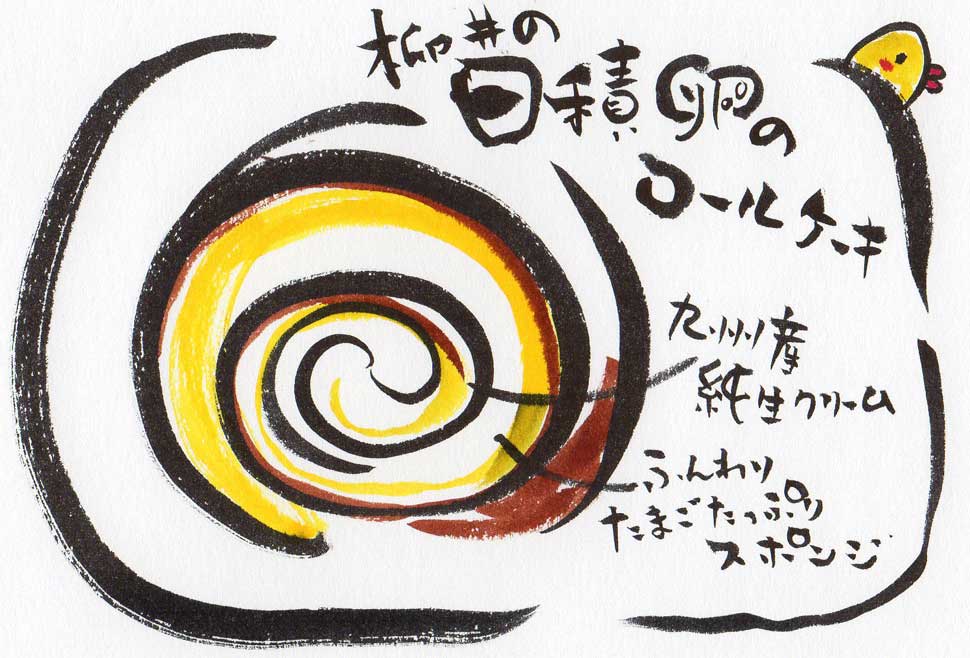 柳井の
日積卵の
ロールケーキ
九州産
純生クリーム
ふんわり
たまごたっぷり
スポンジ